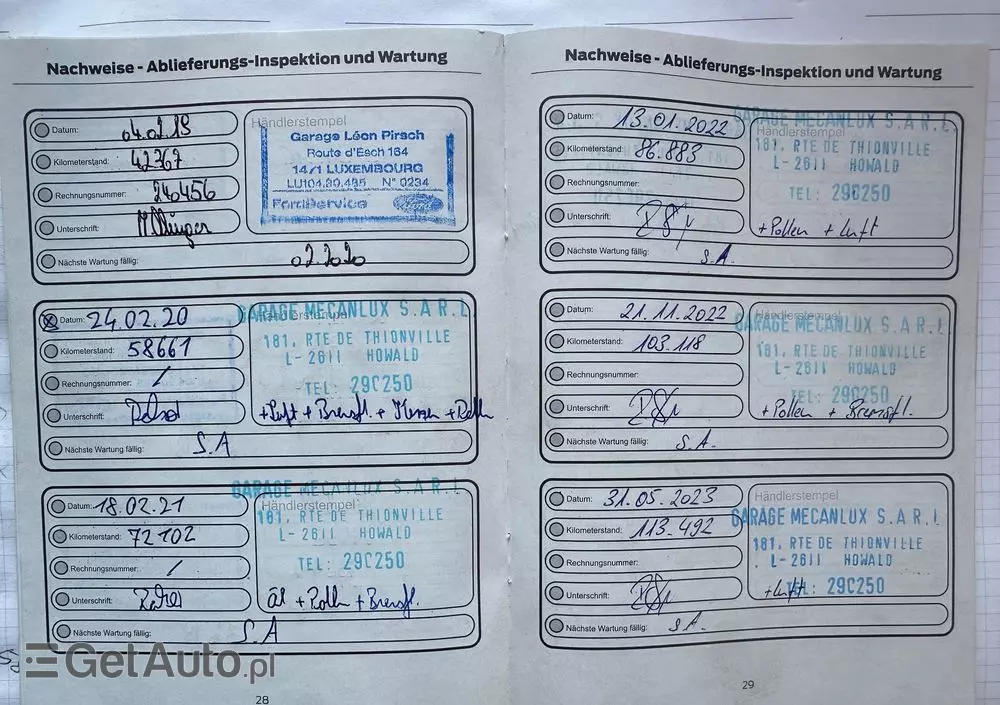 Nachweise - Ablieferungs-Inspektion und Wartung
Datum: 04.02.19
Kilometerstand: 42767
Rechnungsnummer: 240456
Unterschrift:
Nächste Wartung fällig: 02.2020
Händlerstempel
Garage Léon Pirsch
Route d'Esch 164
1471 LUXEMBOURG
LU104.80.485 N° 0234
FordService
Ford
Datum: 24.02.20
Kilometerstand: 58661
Rechnungsnummer: /
Unterschrift:
Nächste Wartung fällig: S.A
Händlerstempel
GARAGE MECANLUX S.A R.L
181, RTE DE THIONVILLE
L-2611 HOWALD
TEL: 290250
+Luft + Bremsfl. + Kerzen +
Datum: 18.02.21
Kilometerstand: 72102
Rechnungsnummer: /
Unterschrift:
Nächste Wartung fällig: S.A
Händlerstempel
GARAGE MECANLUX S.A R.L
181, RTE DE THIONVILLE
L-2611 HOWALD
TEL: 290250
Öl + Pollen + Bremsfl.
28
Nachweise - Ablieferungs-Inspektion und Wartung
Datum: 13.01.2022
Kilometerstand: 86.883
Rechnungsnummer:
Unterschrift:
Nächste Wartung fällig: S.A.
Händlerstempel
GARAGE MECANLUX S.A R.L
181, RTE DE THIONVILLE
L-2611 HOWALD
TEL: 290250
+Pollen + Luft
Datum: 21.11.2022
Kilometerstand: 103.118
Rechnungsnummer:
Unterschrift:
Nächste Wartung fällig: S.A.
Händlerstempel
GARAGE MECANLUX S.A R.L
181, RTE DE THIONVILLE
L-2611 HOWALD
TEL: 290250
+Pollen + Bremsfl.
Datum: 31.05.2023
Kilometerstand: 113.492
Rechnungsnummer:
Unterschrift:
Nächste Wartung fällig: S.A.
Händlerstempel
GARAGE MECANLUX S.A R.L
181, RTE DE THIONVILLE
L-2611 HOWALD
TEL: 290250
+Luft
29
GetAuto.pl